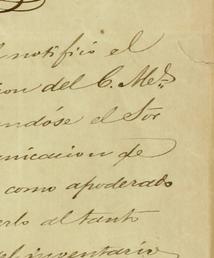 notificó el
ion del C. Med.
andóse el Sor
unicacion de
como apoderado
erlo al tanto
el inventario